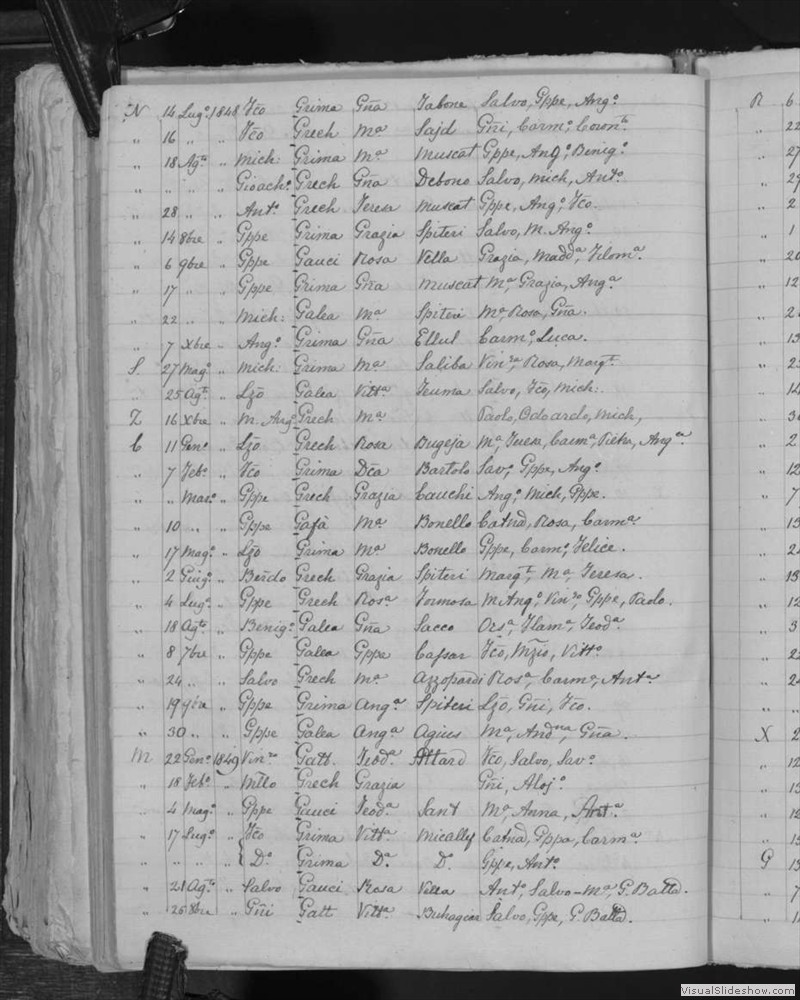 N 14 Lugo. 1848 Fco Grima Gña Tabone Salvo, Gppe, Ango.
„ 16 „ „ Fco Grech Ma Sajd Gñi, Carmo, Coronta.
„ 18 Agto „ Mich: Grima Ma Muscat Gppe, Ango, Benigo.
„ „ „ „ Gioacho. Grech Gña Debono Salvo, Mich, Anto.
„ 28 „ „ Anto. Grech Teresa Muscat Gppe, Ango, Fco.
„ 14 8bre „ Gppe Grima Grazia Spiteri Salvo, M. Ango.
„ 6 9bre „ Gppe Gauci Rosa Vella Grazia, Madda, Filoma.
„ 17 „ „ Gppe Grima Gña Muscat Ma, Grazia, Anga.
„ 22 „ „ Mich: Galea Ma Spiteri Ma, Rosa, Gña.
„ 7 Xbre „ Ango. Grima Gña Ellul Carmo, Luca.
S 27 Mago. „ Mich: Grima Ma Saliba Vinza, Rosa, Margta.
„ 25 Agto. „ Lzo Galea Vitta Zeuma Salvo, Fco, Mich:
Z 16 Xbre „ M. Ango. Grech Ma Paolo, Odoardo, Mich,
C 11 Geno. „ Lzo Grech Rosa Bugeja Ma, Carma, Pietro,
„ 7 Febo. „ Fco Grima Dca Bartolo Savo, Gppe, Ango.
„ „ Marzo. „ Gppe Grech Grazia Cauchi Ango, Mich, Gppe.
„ 10 „ „ Gppe Gafà Ma Bonello Catna, Rosa, Carma
„ 17 Mago. „ Lzo Grima Ma Bonello Gppe, Carmo, Felice.
„ 2 Giugo. „ Berdo Grech Grazia Spiteri Margta, Ma, Teresa.
„ 4 Lugo. „ Gppe Grech Rosa Formosa M. Ango, Vinzo, Gppe, Paolo.
„ 18 Agto. „ Benigo. Galea Gña Sacco Orsa, Teoda.
„ 8 7bre „ Gppe Galea Gppe Cassar Fco, Mzio, Vitto
„ 24 „ „ Salvo Grech Ma Azzopardi Rosa, Carmo, Anto
„ 19 9bre „ Gppe Grima Anga Spiteri Lzo, Gñi, Fco.
„ 30 „ „ Gppe Galea Anga Agius Ma, Andna, Gña.
M 22 Geno. 1849 Vinzo Gatt. Teoda. Attard Fco, Salvo, Savo.
„ 18 Febo. „ Mllo Grech Grazia Gñi, Alojo.
„ 4 Mago. „ Gppe Gauci Teoda. Sant Ma, Anna,
„ 17 Lugo. „ Fco Grima Vitta. Micallef Catna, Gppa, Carma.
„ „ „ „ Do. Grima Da. Do. Gppe, Anto.
„ 21 Agto. „ Salvo Gauci Rosa Vella Anto, Salvo-Ma, G. Batta.
„ 25 Xbre „ Gñi Gatt Vitta. Buhagiar Salvo, Gppe, G. Batta.
R 6
„ 22
„ 27
„ 2
„ 1
„ 20
„ 12
X 2
G 13
VisualSlideshow.com